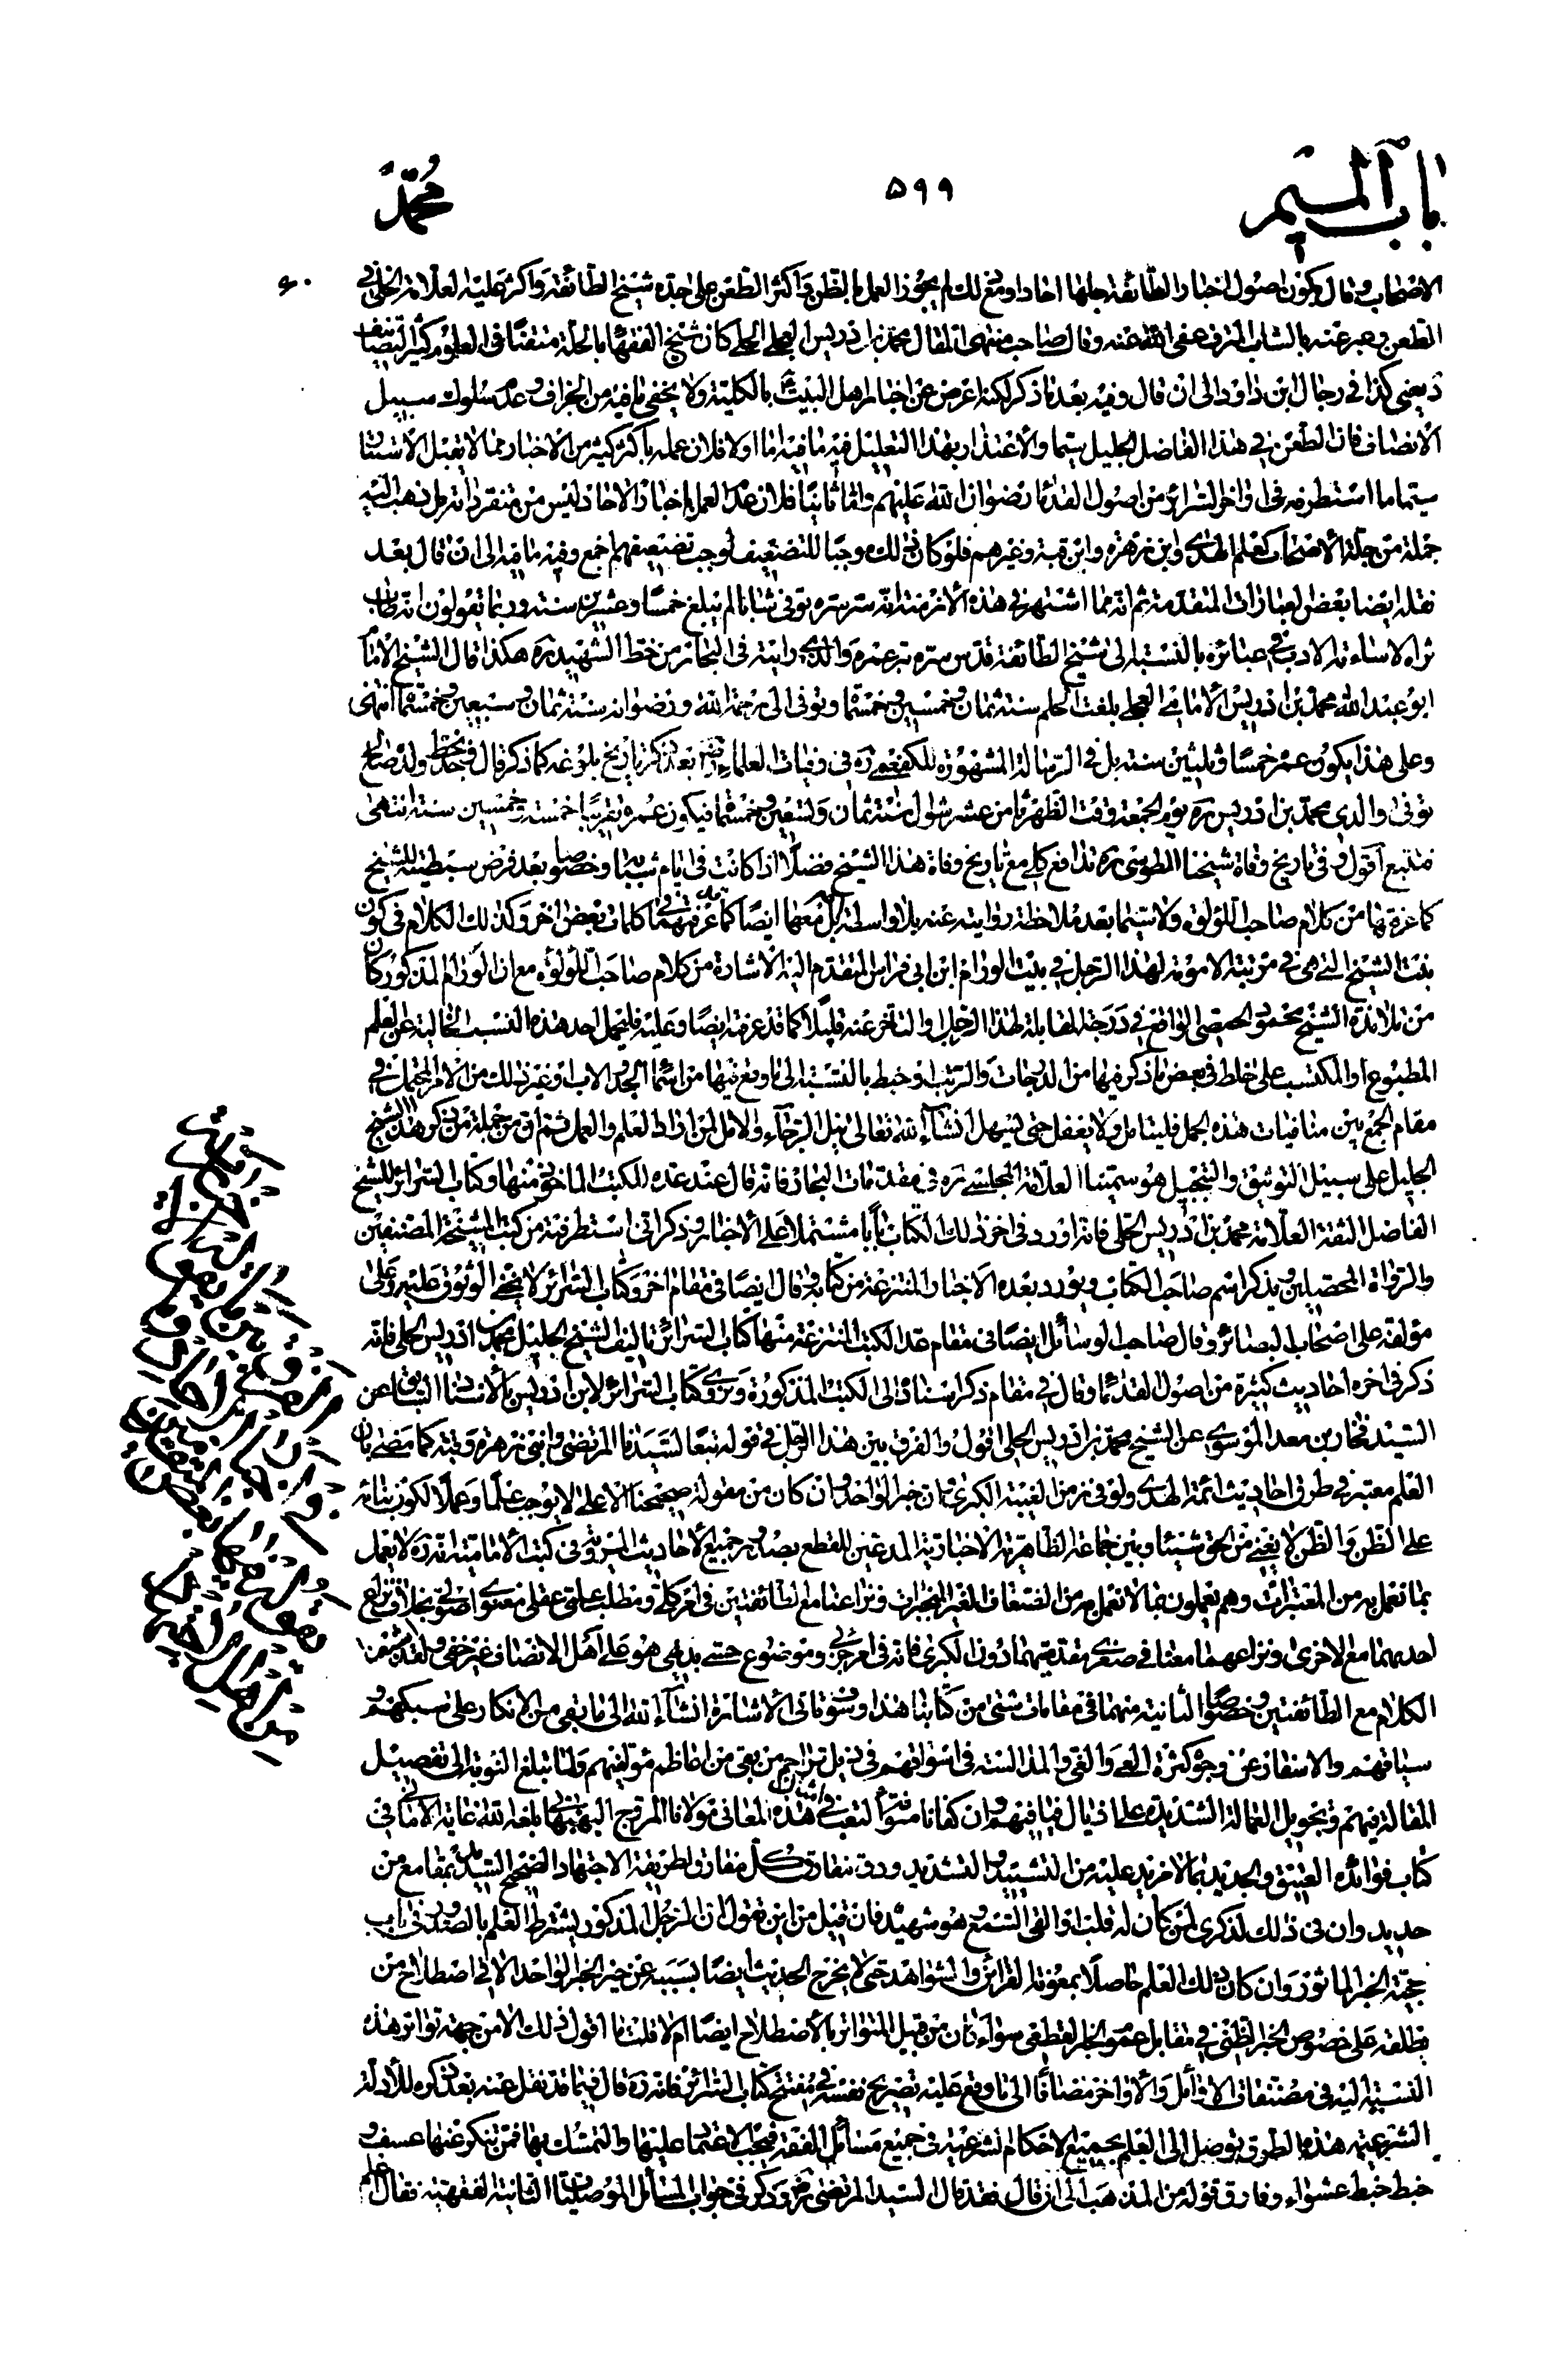 باب الميم
۵۹۹
محمّد
الاصحاب وقال يكون اصول اخبار الطائفة جلها احادا ومع ذلك لم يجوز العمل بالظن واكثر الطعن على جده شيخ الطائفة واكثر عليه العلامة الحلى فى
الطعن وعبر عنه بالشاب المترف عفى الله عنه وقال صاحب منتهى المقال محمد بن ادريس العجلى الحلى كان شيخ الفقهاء بالحلة متقنا فى العلوم كثير التصانيف
د يعنى كذا فى رجال ابن داود الى ان قال وفيه بعد ما ذكر لكنه اعرض عن اخبار اهل البيت بالكلية ولا يخفى ما فيه من الجزاف وعدم سلوك سبيل
الانصاف فان الطعن فى هذا الفاضل الجليل سيما والاعتذار بهذا التعليل فيه ما فيه اما اولا فلان عمله باكثر كثير من الاخبار مما لا يقبل الاستتار
سيما ما استطرفه فى اواخر السرائر من اصول القدماء رضوان الله عليهم واما ثانيا فلان عدم العمل باخبار الاحاد ليس من متفرداته بل ذهب اليه
جملة من جلة الاصحاب كعلم الهدى وابن زهرة وابن قبة وغيرهم فلو كان ذلك موجبا للتضعيف لوجب تضعيفهم اجمع وفيه ما فيه الى ان قال بعد
نقله ايضا بعض العبارات المتقدمة ثم انه مما اشتهر فى هذه الازمنة انه سر سره توفى شابا لم يبلغ خمسا وعشرين سنة وربما يقولون انه طاب
ثراه لاساءته الادب فى عبائره بالنسبة الى شيخ الطائفة قدس سره بتر عمره والذى رايته فى البحار من خط الشهيد ره هكذا قال الشيخ الامام
ابو عبد الله محمد بن ادريس الامامى العجلى بلغت الحلم سنة ثمان وخمسين وخمسمائة وتوفى الى رحمة الله ورضوانه سنة ثمان وسبعين وخمسمائة انتهى
وعلى هذا يكون عمره خمسا وثلثين سنة بل فى الرسالة المشهورة للكفعمى ره فى وفيات العلماء بعد ذكر تاريخ بلوغه كما ذكر قال وجد بخط ولده صالح
توفى والدى محمد بن ادريس ره يوم الجمعة وقت الظهر ثامن عشر شوال سنة ثمان وتسعين وخمسمائة فيكون عمره تقريبا خمسة وخمسين سنة انتهى
فتتبع اقول وفى تاريخ وفاة شيخنا الطوسى ره تدافع كلى مع تاريخ وفاة هذا الشيخ فضلا اذا كانت فى ايام شبابه وخصوصا بعد فرض سبطيته للشيخ
كما عرفتها من كلام صاحب اللؤلؤه ولا سيما بعد ملاحظة روايته عنه بلا واسطة بل معها ايضا كما عرفتهما فى كلمات بعض اخر وكذلك الكلام فى كون
بنت الشيخ التى هى فى مرتبة الامومة لهذا الرجل فى بيت الورام ابن ابى فراس المتقدم اليه الاشارة من كلام صاحب اللؤلؤه مع ان الورام المذكور كان
من تلامذة الشيخ محمود الحمصى الواقع فى درجة المقابلة لهذا الرجل والتاخر عنه قليلا كما قد عرفته ايضا وعليه فليحمل احد هذه النسب الخالية عن العلم
المطبوع او المكتسب على خلط فى بعض ما ذكر فيها من الدرجات والترتيب او خبط بالنسبة الى ما وقع فيها من اسماء الجد والاب او غير ذلك من الامر المحتمل فى
مقام الجمع بين منافيات هذه الجمل فليتامل ولا يغفل حتى يسهل انشاء الله تعالى نيل الرجاء والامل لمن اراد العلم والعمل ثم ان من جملة من ذكر هذا الشيخ
الجليل على سبيل التوثيق والتبجيل هو سمينا العلامة المجلسى ره فى مقدمات البحار فانه قال عند عده الكتب الماخوذ منها وكتاب السرائر للشيخ
الفاضل الثقة العلامة محمد بن ادريس الحلى فانه اورد فى اخر ذلك الكتاب بابا مشتملا على الاخبار وذكر انى استطرفته من كتب المشيخة المصنفين
والرواة المحصلين ويذكر اسم صاحب الكتاب ويورد بعده الاخبار المنتزعة من كتابه وقال ايضا فى مقام اخر وكتاب السرائر لا يخفى الوثوق عليه وعلى
مؤلفه على اصحاب البصائر وقال صاحب الوسائل ايضا فى مقام عد الكتب المنتزعة منها كتاب السرائر تاليف الشيخ الجليل محمد بن ادريس الحلى فانه
ذكر فى اخره احاديث كثيرة من اصول القدماء وقال فى مقام ذكر اسناده الى الكتب المذكورة ونروى كتاب السرائر لابن ادريس بالاسناد السابق عن
السيد فخار بن معد الموسوى عن الشيخ محمد بن ادريس الحلى اقول والفرق بين هذا الرجل فى قوله تبعا لسيدنا المرتضى وابنى زهرة وقبة كما مضى بان
العلم معتبر فى طرق احاديث ائمة الهدى ولو فى زمن الغيبة الكبرى وان خبر الواحد وان كان من مقولة صحيحنا الاعلى لا يوجب علما وعملا لكون بنائه
على الظن والظن لا يغنى من الحق شيئا وبين جماعة الظاهرية الاخبارية المدعين للقطع بصدور جميع الاحاديث المروية فى كتب الامامية انه ره لا يعمل
بما نعمل به من المعتبرات وهم يعملون بما لا نعمل به من الضعاف الغير المنجبرات ونزاعنا مع الطائفتين فى امر كلى ومطلب علمى عقلى معنوى اصولى بخلاف نزاع
احديهما مع الاخرى ونزاعهما معنا فى صغرى مقدمتيهما دون الكبرى فانه فى امر جزئى وموضوع حسى بديهى هو على اهل الانصاف غير خفى ولقد
الكلام مع الطائفتين وخصوصا الثانية منهما فى مقامات شتى من كتابنا هذا وسوف تاتى الاشارة انشاء الله الى ما بقى من الانكار على سبكهم و
سياقهم والاسفار عن وجوه كثرة العى والغى والمذالسنة فى اسواقهم فى ذيل تراجم من بقى من اعاظم مؤلفيهم ولما تبلغ النوبة الى تفصيل
المقالة فيهم وتحويل العمالة الشديدة على اذيال فيافيهم وان كفانا مؤنة التعب فى امثال هذه المعانى مولانا المروج البهبهانى بلغه الله غاية الامانى فى
كتاب فوائده العتيق والجديد بما لا مزيد عليه من التشييد والتشديد ودق مفارق كل مفارق لطريقة الاجتهاد الصحيح السديد بمقامع من
حديد وان فى ذلك لذكرى لمن كان له قلب او القى السمع وهو شهيد فان قيل من اين تقول ان الرجل المذكور يشترط العلم بالصدور فى باب
حجية الخبر الماثور وان كان ذلك العلم حاصلا بمعونة القرائن والشواهد حتى لا يخرج الحديث ايضا بسببه عن حيز الخبر الواحد الا فى اصطلاح من
يطلقه على خصوص الخبر الظنى فى مقابل عموم الخبر القطعى سواء كان من قبيل المتواتر بالاصطلاح ايضا ام لا قلت ما اقول ذلك الا من جهة تواتر هذه
النسبة اليه فى مصنفات الاوائل والاواخر مضافا الى ما وقع عليه تصريح نفسه فى مفتتح كتاب السرائر فانه ره قال فيما قد نقل عنه بعد ذكره للادلة
الشرعية هذه الطرق توصل الى العلم بجميع الاحكام الشرعية فى جميع مسائل الفقه فيجب الاعتماد عليها والتمسك بها فمن تنكب عنها عسف و
خبط خبط عشواء وفارق قوله من المذهب الى ان قال فقد قال السيد المرتضى رض وذكر فى جواب المسائل الموصليات الثانية الفقهية فقال اعلم